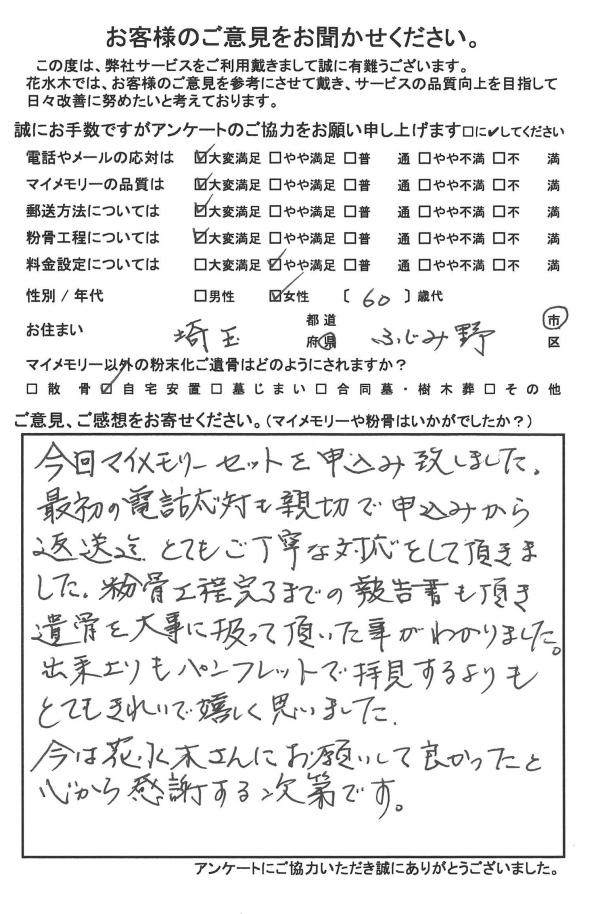 お客様のご意見をお聞かせください。
この度は、弊社サービスをご利用戴きまして誠に有難うございます。
花水木では、お客様のご意見を参考にさせて戴き、サービスの品質向上を目指して
日々改善に努めたいと考えております。
誠にお手数ですがアンケートのご協力をお願い申し上げます□に✔してください
電話やメールの応対は ☑大変満足 □やや満足 □普 通 □やや不満 □不 満
マイメモリーの品質は ☑大変満足 □やや満足 □普 通 □やや不満 □不 満
郵送方法については ☑大変満足 □やや満足 □普 通 □やや不満 □不 満
粉骨工程については ☑大変満足 □やや満足 □普 通 □やや不満 □不 満
料金設定については □大変満足 ☑やや満足 □普 通 □やや不満 □不 満
性別 / 年代 □男性 ☑女性 〔 60 〕歳代
お住まい 埼玉 都道府県 ふじみ野 市区
マイメモリー以外の粉末化ご遺骨はどのようにされますか？
□散 骨 ☑自宅安置 □墓じまい □合同墓・樹木葬 □その他
ご意見、ご感想をお寄せください。(マイメモリーや粉骨はいかがでしたか？)
今回マイメモリーセットを申込み致しました。
最初の電話応対も親切で申込みから
返送迄 とてもご丁寧な対応をして頂きま
した。粉骨工程完了までの報告書も頂き
遺骨を大事に扱って頂いた事がわかりました。
出来上りもパンフレットで拝見するよりも
とてもきれいで嬉しく思いました。
今は花水木さんにお願いして良かったと
心から感謝する次第です。
アンケートにご協力いただき誠にありがとうございました。